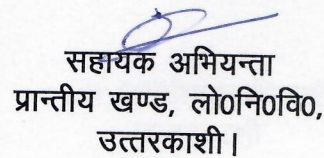 सहायक अभियन्ता
प्रान्तीय खण्ड, लो0नि0वि0,
उत्तरकाशी।